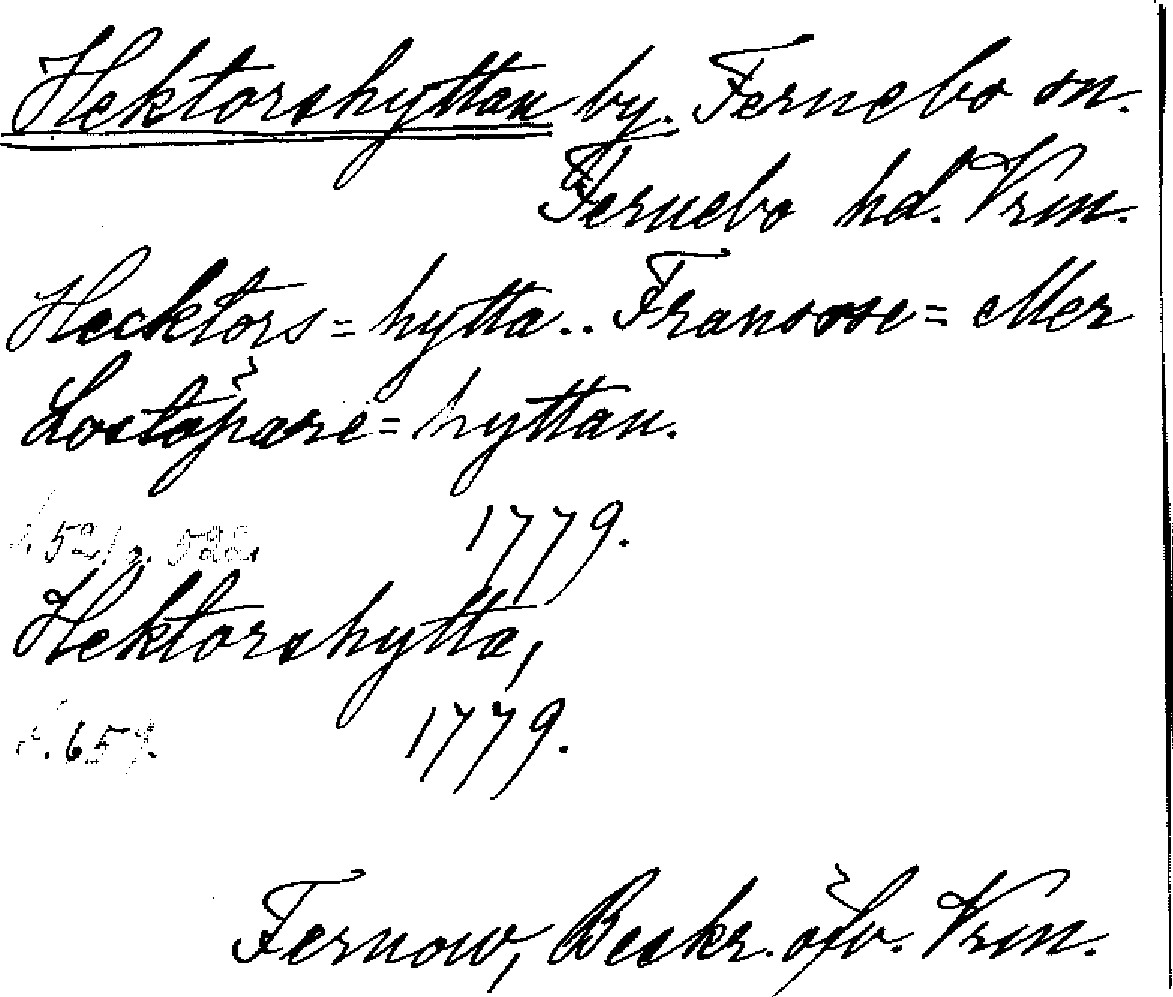 Hektorshyttan by. Fernebo sn.
Fernebo hd. Vrm.
Hecktors=hytta.. Fransose= eller
Lostäpare=hyttan.
1779.
Hektorshytta,
s. 659. 1779.
Fernow, Beskr. öfv. Vrm.